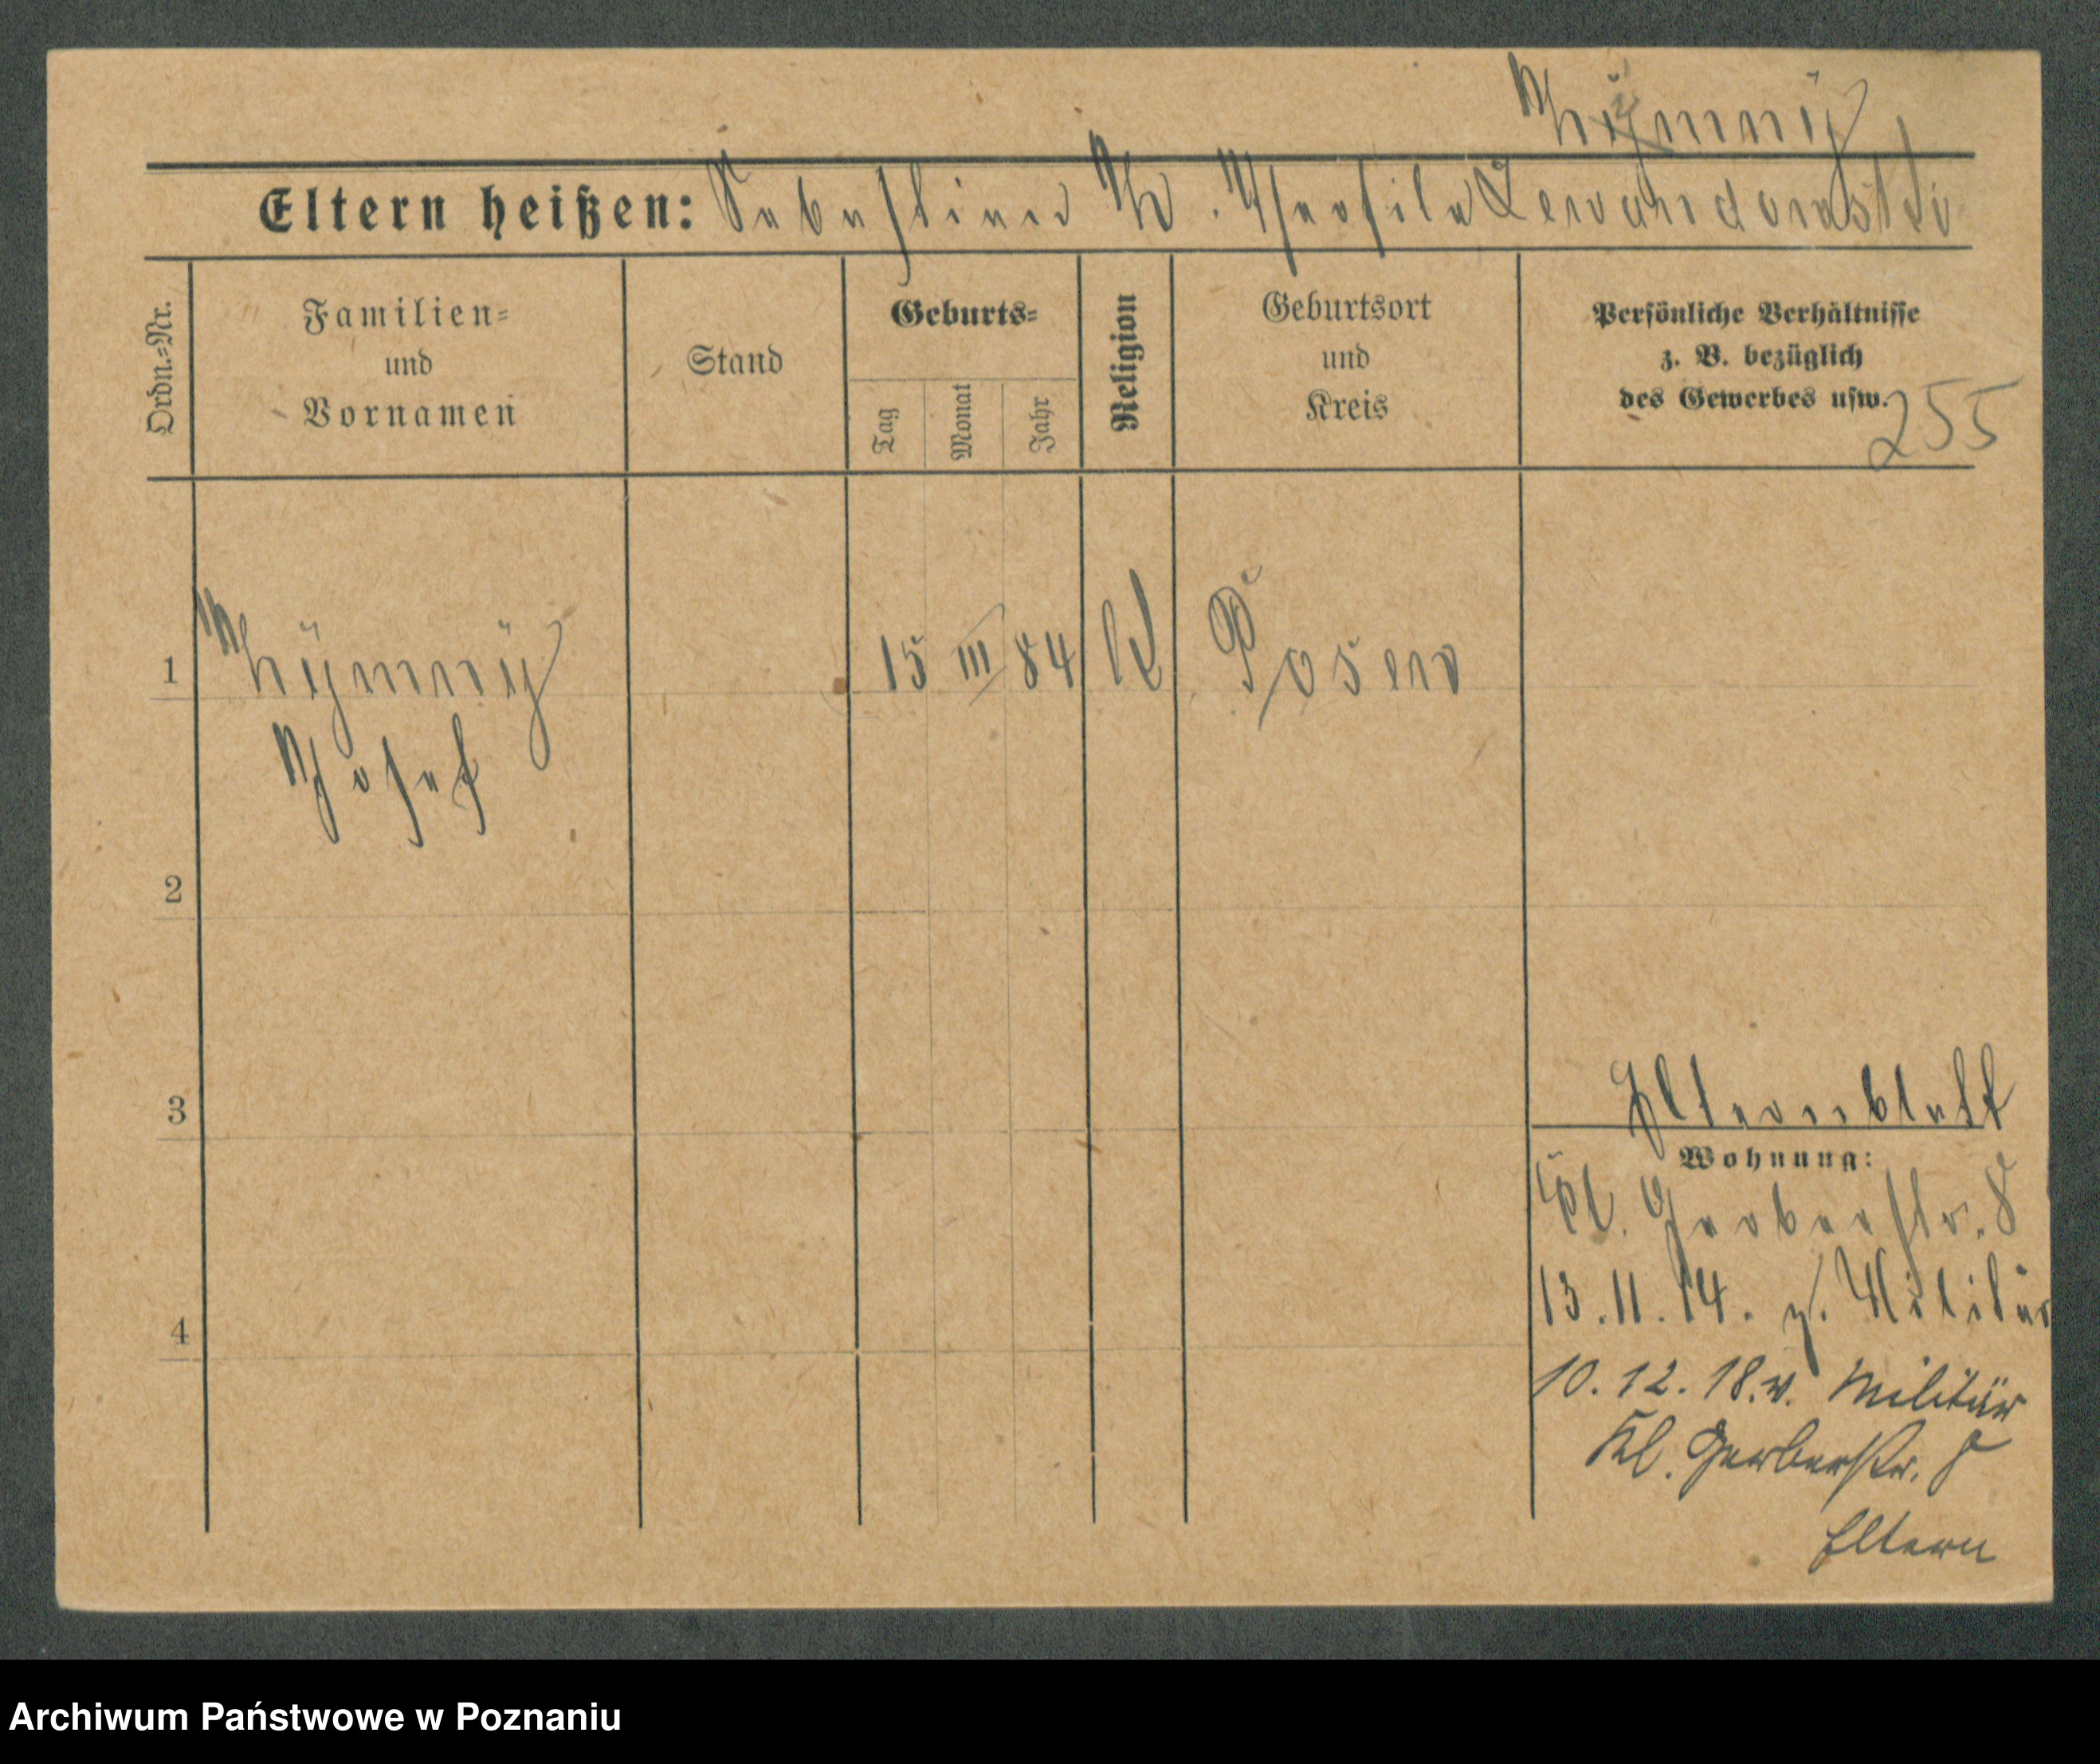 Eltern heißen: Sebastian u. Theofila Lewandowski
Ordn.=Nr.
Familien=
und
Vornamen
Stand
Geburts=
Tag
Monat
Jahr
Religion
Geburtsort
und
Kreis
Persönliche Verhältnisse
z. B. bezüglich
des Gewerbes usw.
255
1
15 III 84
Posen
Josef
2
3
Elternblatt
Wohnung:
Kl. Gerberstr. 8
13.11.14. z. Militär
4
10.12.18. v. Militär
Kl. Gerberstr. 8
Eltern
Archiwum Państwowe w Poznaniu